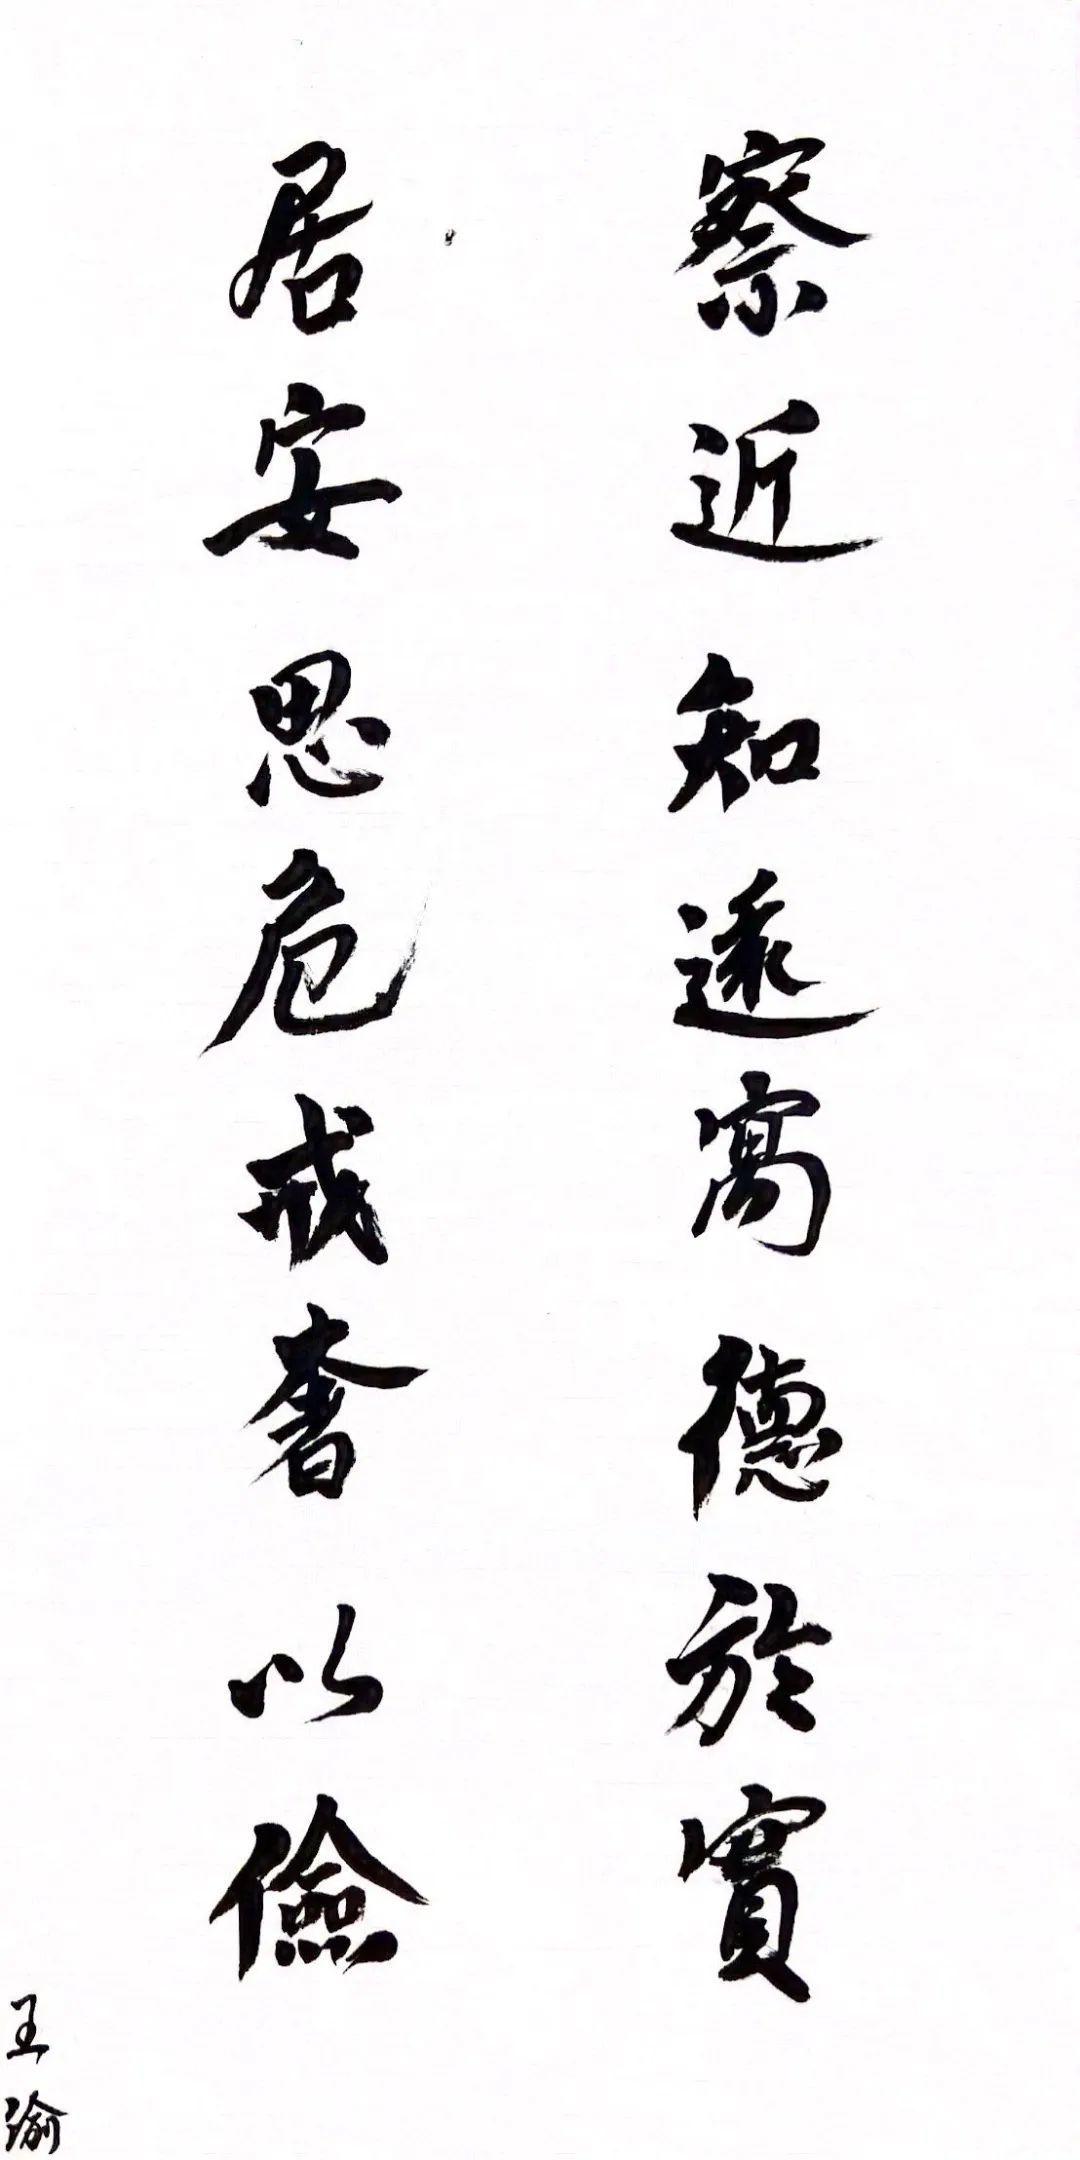 察近知遠寓德於實
居安思危戒奢以儉
王瑜